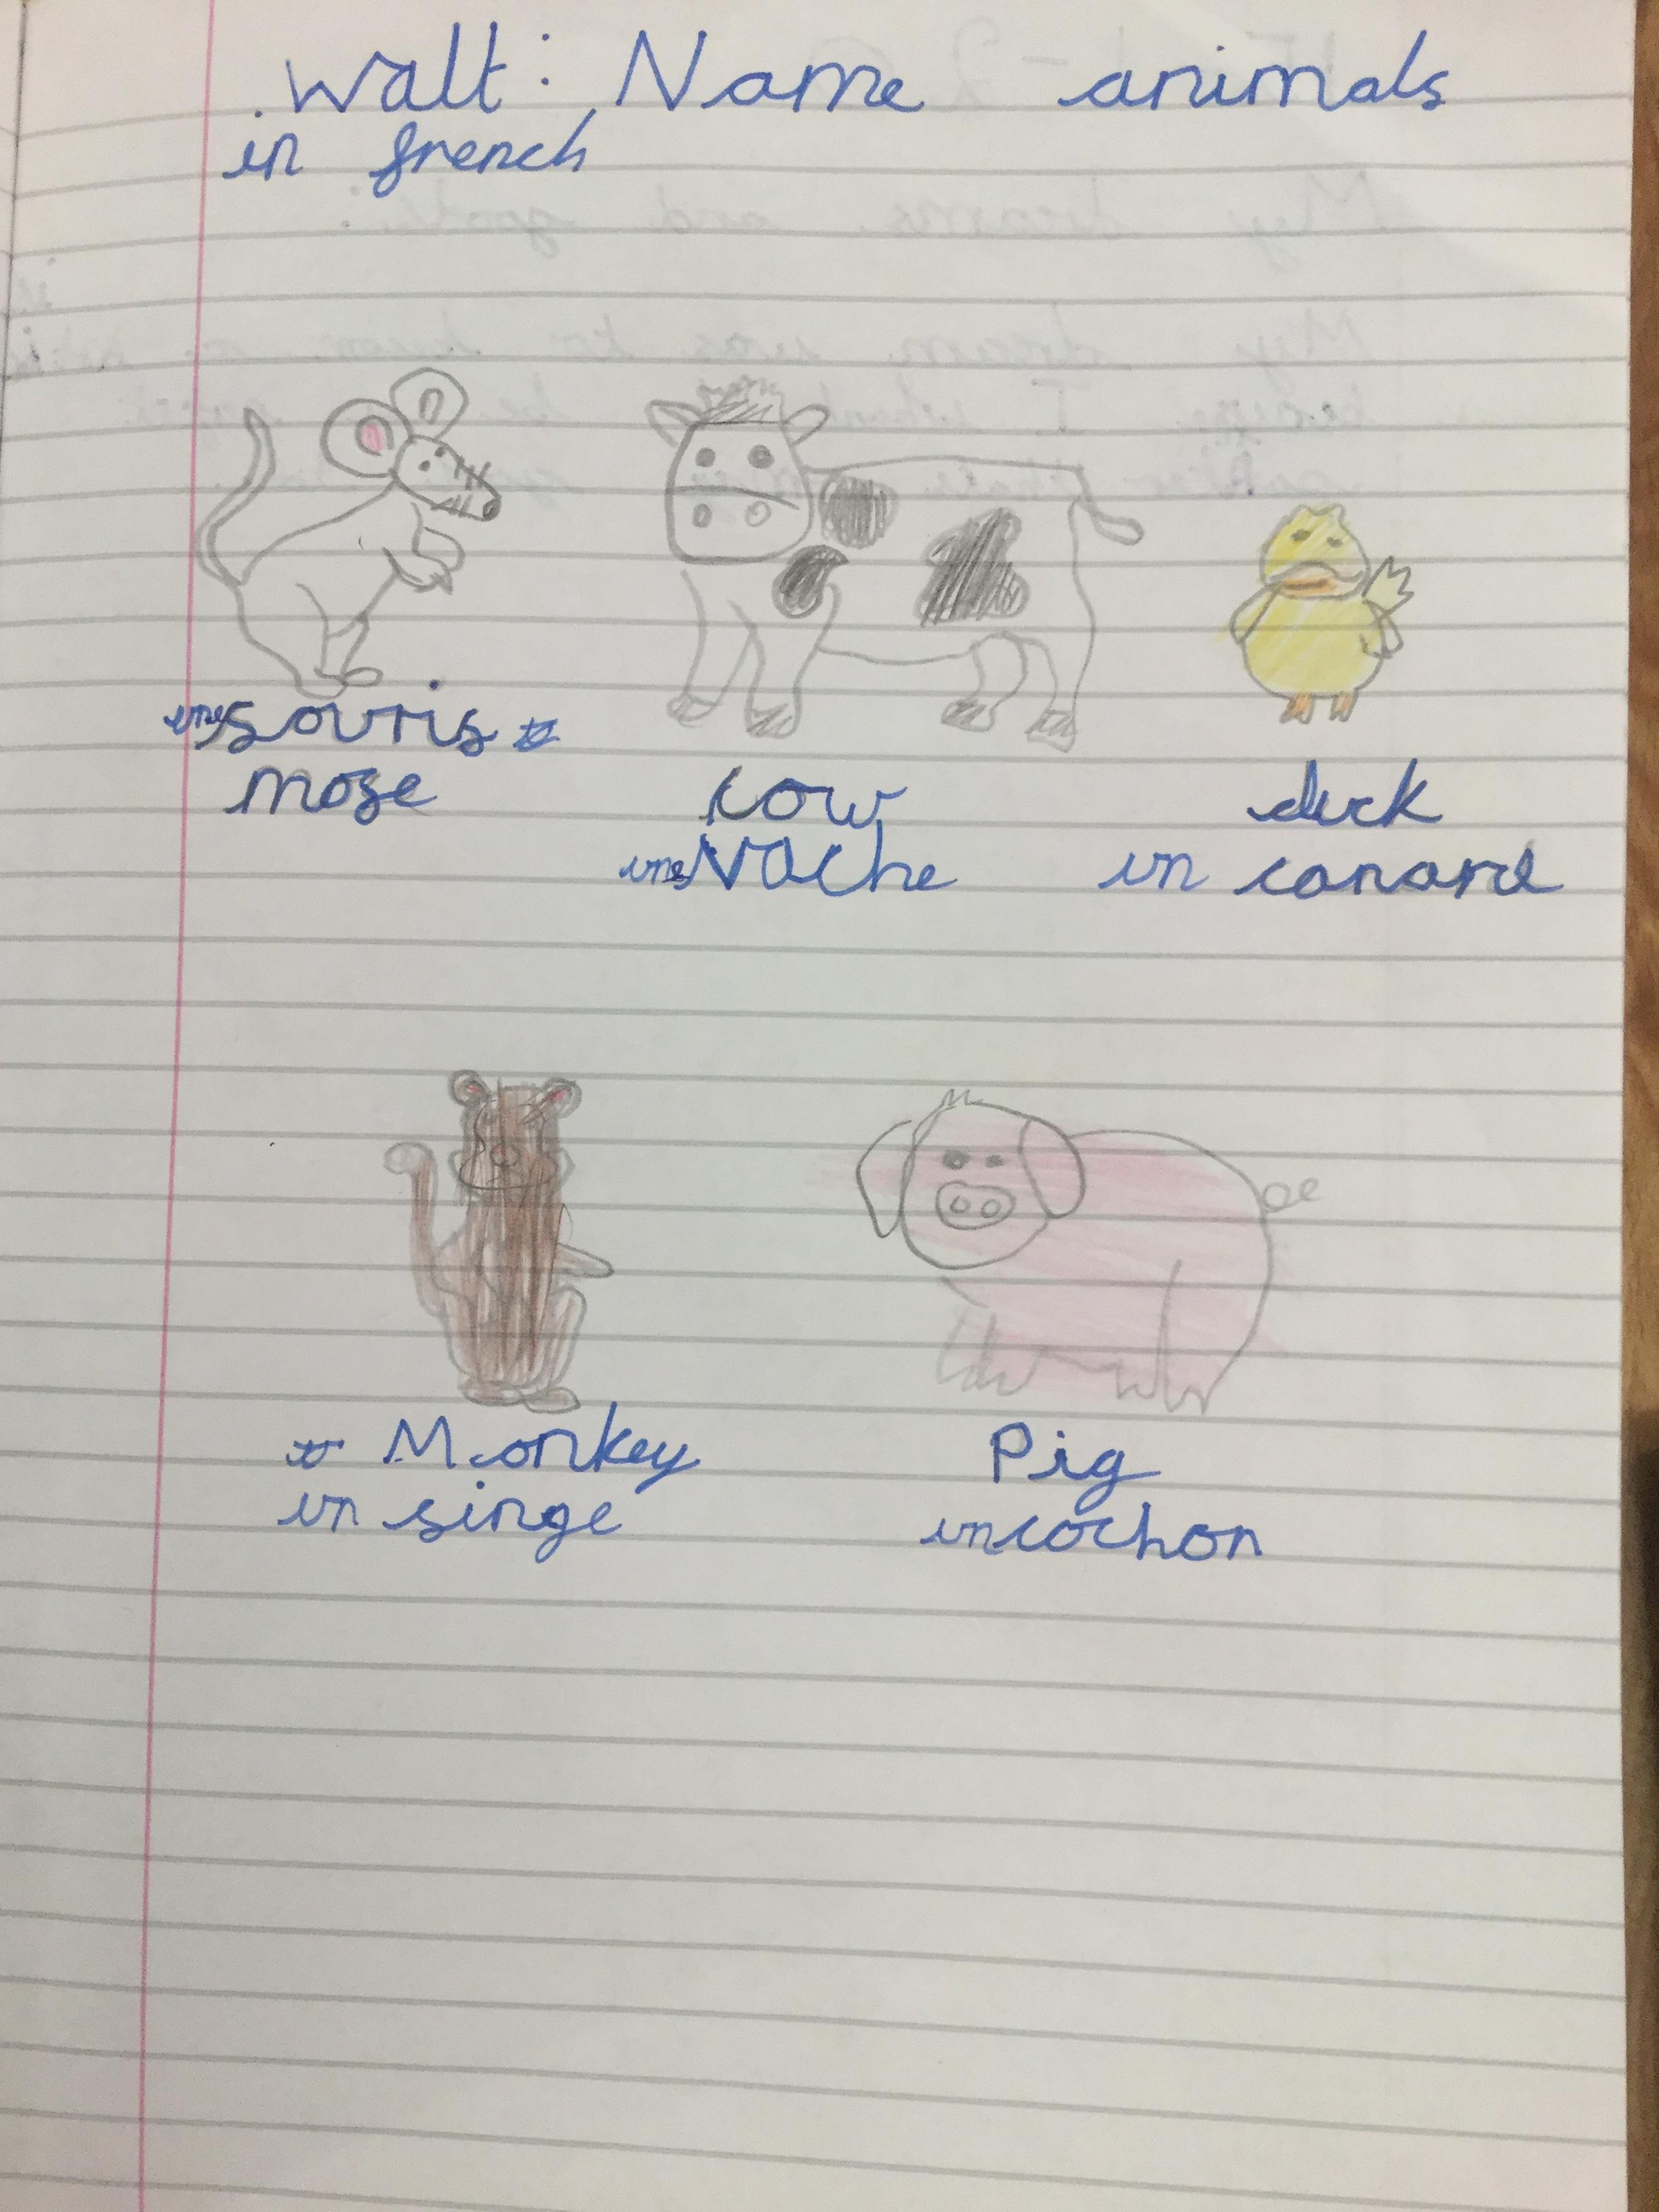 Walt: Name animals
in french
une souris
moze
cow
une vache
duck
un canard
Monkey
un singe
Pig
un cochon